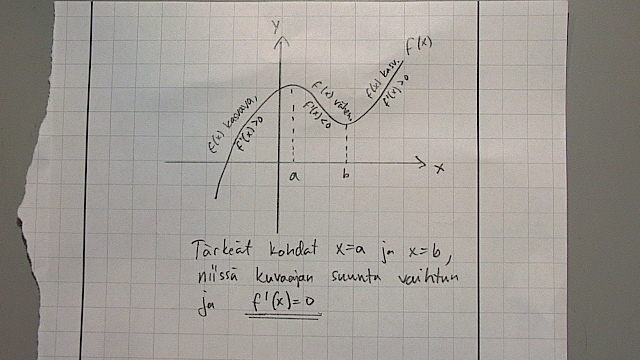 y
f(x)
f(x) kasvava,
f'(x)>0
f(x) vähen.
f'(x)<0
f(x) kasv.
f'(x)>0
a
b
x
Tärkeät kohdat x=a ja x=b,
niissä kuvaajan suunta vaihtuu
ja f'(x)=0